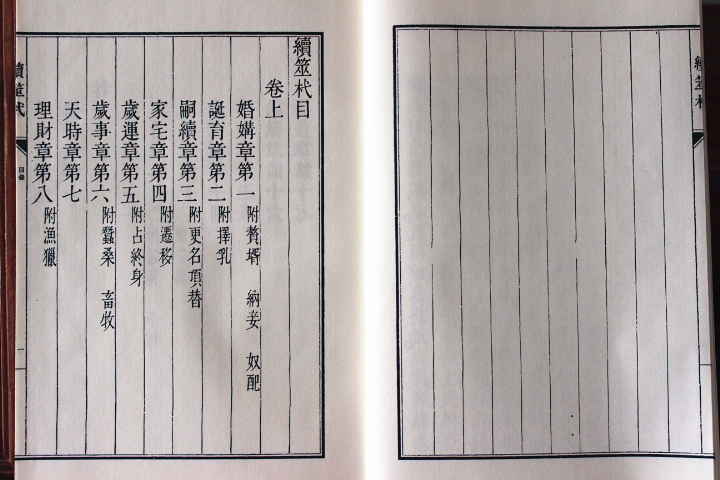 續筮杙目
卷上
婚媾章第一 附贅壻 納妾 奴配
誕育章第二 附擇乳
嗣續章第三 附更名頂替
家宅章第四 附遷移
歲運章第五 附占終身
歲事章第六 附蠶桑 畜牧
天時章第七
理財章第八 附漁獵
續筮杙
目錄
一
續筮杙